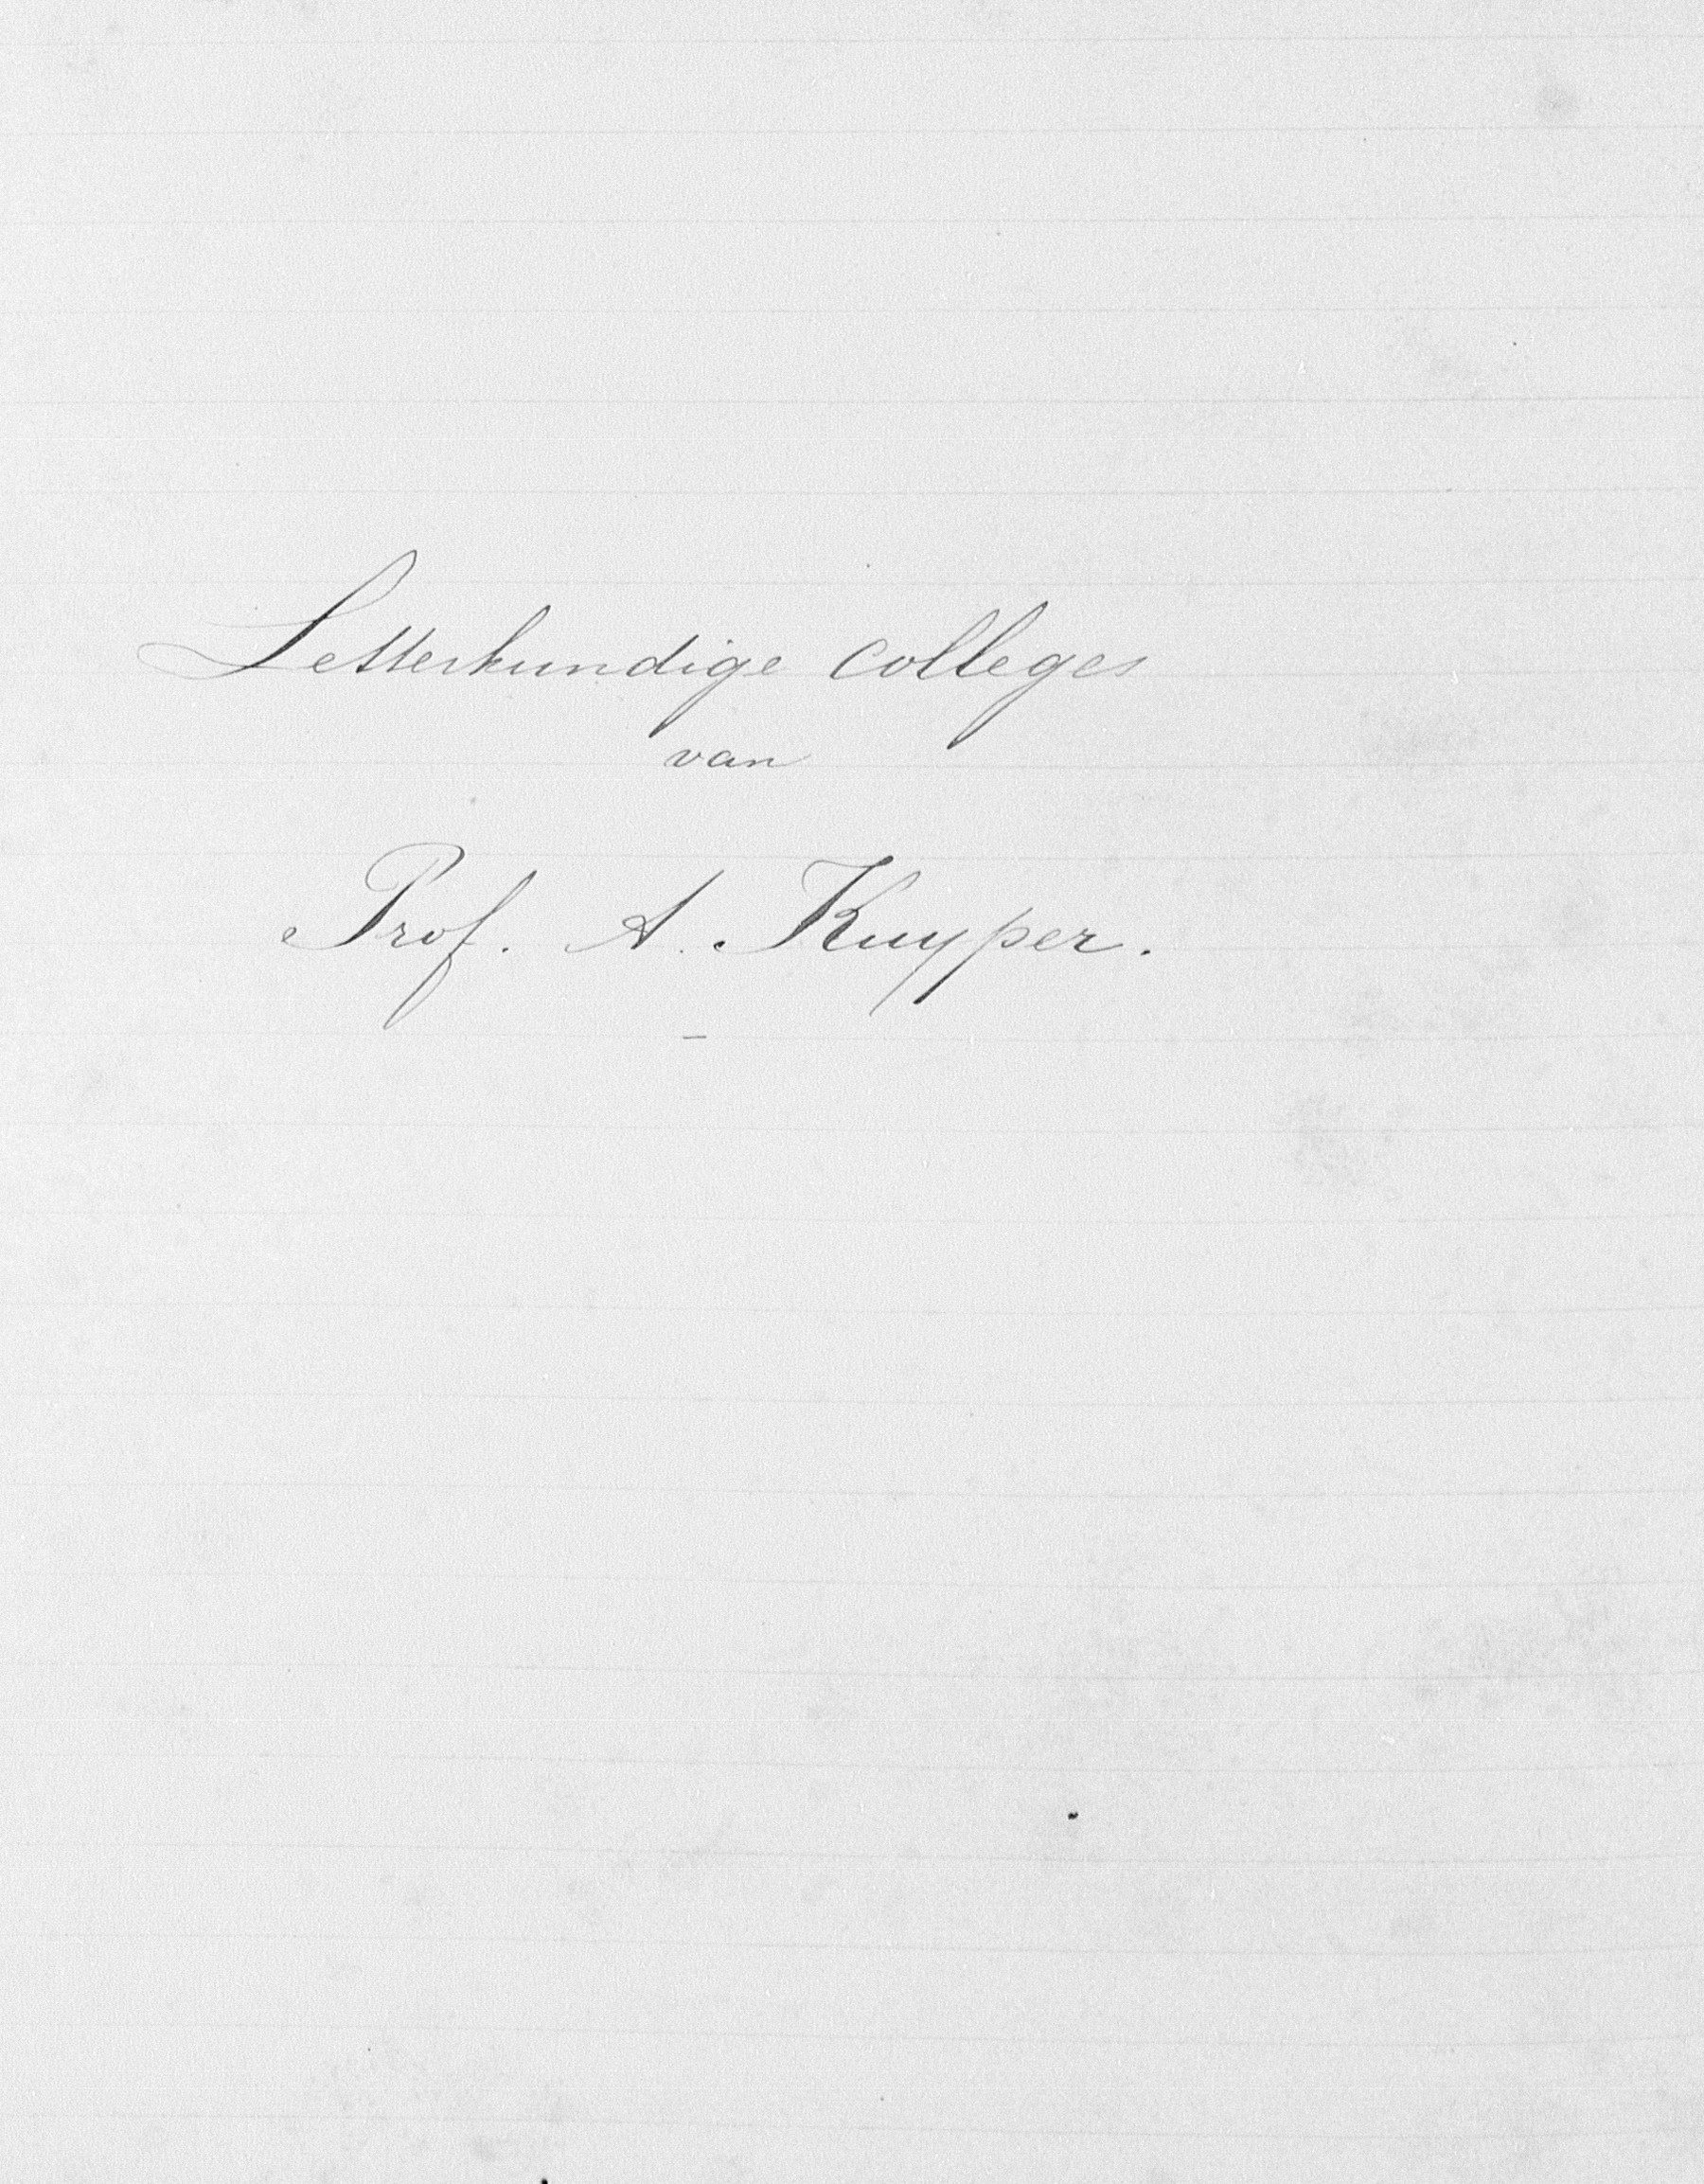 Letterkundige colleges
van
Prof. A. Kuyper.